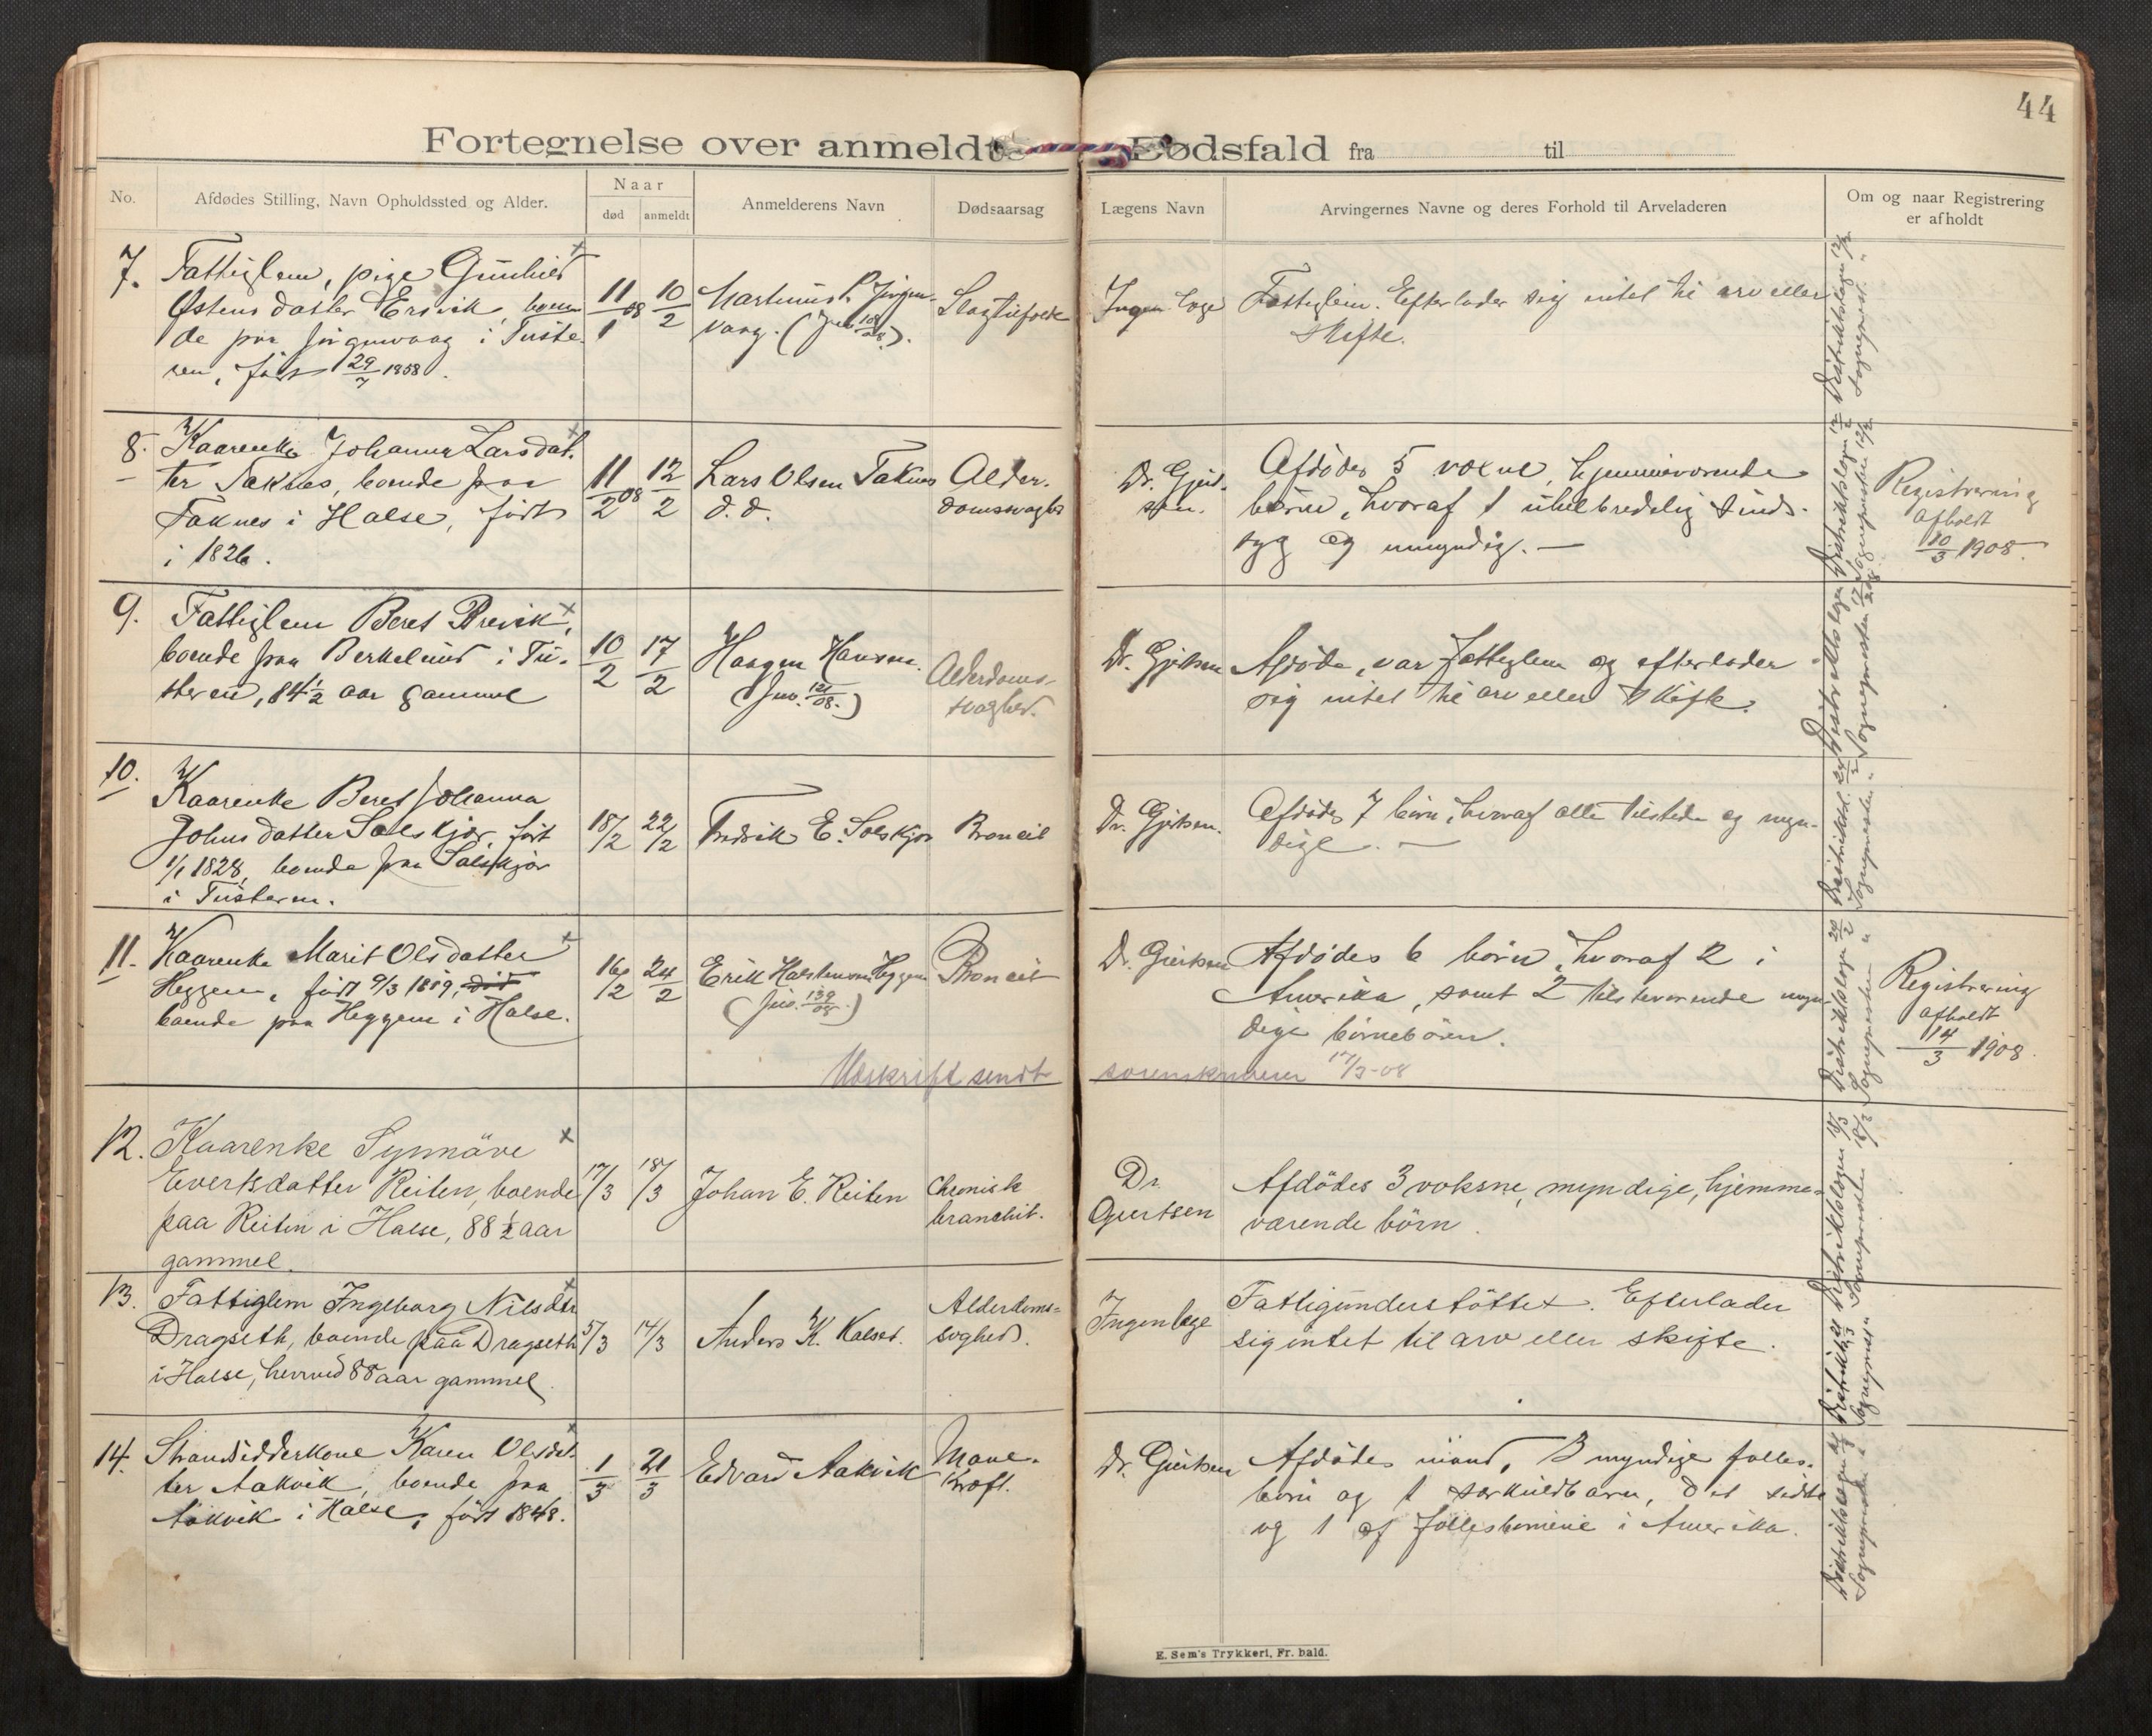 44
Fortegnelse over anmeldte Dødsfald fra til
No.
Afdødes Stilling, Navn Opholdssted og Alder.
Naar
død
anmeldt
Anmelderens Navn
Dødsaarsag
Lægens Navn
Arvingernes Navne og deres Forhold til Arveladeren
Om og naar Registrering
er afholdt
7.
Fattiglem, pige Gunhild
Østensdatter Ersvik, boen
de paa Jørgenvaag i Tuste
ren, født 29/7 1858.
11/1 08
10/2
Martinus P. Jørgen-
vaag. (Jnr. 104/08).
Ingen læge
Fattiglem. Efterlader sig intet til arv eller
skifte.
8.
Kaarenke Johanna Larsdat.
ter Taknes, boende paa
Taknes i Halse, født
i 1826.
11/2 08
12/2
Lars Olsen Taknes
d. d.
Alder.
domssvaghed
Dr. Gjert.
sen.
Afdødes 5 voxne, hjemmeværende
børn, hvoraf 1 uhelbredelig sinds-
syg og umyndig. —
Registrering
afholdt
10/3 1908.
9.
Fattiglem Beret Brevik,
boende paa Berkelund i Tu-
steren, 84 1/2 aar gammel
10/2
17/2
Haagen Hansen.
(Jnr. 121/08.)
Alderdoms-
svaghed.
Dr. Gjertsen
Afdøde, var fattiglem og efterlader
sig intet til arv eller skifte.
10.
Kaarenke Beret Johanna
Johnsdatter Solskjør, født
1/1 1828, boende paa Solskjør
i Tusteren.
18/2
22/2
Fredrik E. Solskjør
Broncit
Dr. Gjertsen.
Afdødes 7 børn, hvoraf alle tilstede og myn-
dige. —
11.
Kaarenke Marit Olsdatter
Heggem, født 9/3 1819, død
boende paa Heggem i Halse.
16/2
24/2
Erik Halstensen Heggem
(Jnr. 139/08.)
Broncit
Dr. Gjertsen
Afdødes 6 børn, hvoraf 2 i
Amerika, samt 2 tilsteværende myn
dige børnebörn.
Registrering
afholdt
14/3 1908.
Udskrift sendt sorenskriveren 17/3-08
12.
Kaarenke Synnäve
Evertsdatter Reiten, boende
paa Reiten i Halse, 88 1/2 aar
gammel.
17/3
18/3
Johan E. Reiten
Chronisk
branchit.
Dr.
Gjertsen
Afdödes 3 voksne, myndige, hjemme-
værende börn.
13.
Fattiglem Ingeborg Nilsdtr
Dragseth, boende paa Dragseth
i Halse, henved 88 aar gammel.
5/3
14/3
Anders K. Kalset.
Alderdoms=
svghed.
Ingen læge
Fattigunderstöttet. Efterlader
sig intet til arv eller skifte.
14.
Strandsidderkone Karen Olsdat-
ter Aakvik, boende paa
Aakvik i Halse, født 1848.
1/3
21/3
Edvard Aakvik
Mave-
kræft.
Dr. Gjertsen
Afdödes mand, 3 myndige fælles-
børn og 1 særkuldbarn, det sidste
og 1 af fællesbørnene i Amerika.
E. Sem's Trykkeri, Fr. hald.